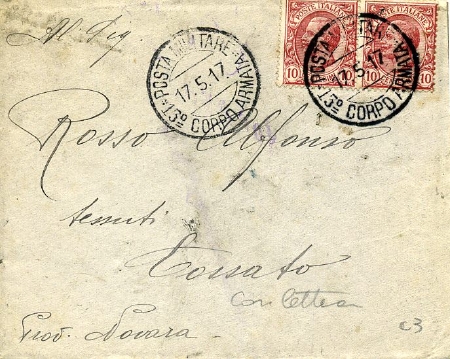 POSTE ITALIANE POSTE ITALIANE
10 10 10 10
POSTA MILITARE
17.5.17
13º CORPO ARMATA
POSTA MILITARE
17.5.17
13º CORPO ARMATA
Al Sig
Rosso Alfonso
tessuti
Cossato
Con lettera
Prov. Novara
c3